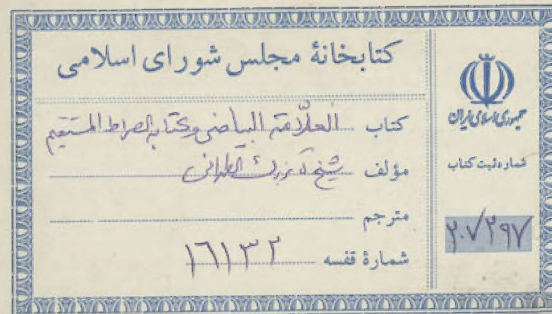 کتابخانهٔ مجلس شورای اسلامی
کتاب العلّامة البیاضی وکتابه الصراط المستقیم
مؤلف شیخ آغا بزرك الطهرانی
مترجم
شمارهٔ قفسه ۱۶۱۳۲
جمهوری اسلامی ایران
شماره ثبت کتاب
۲۰۷۲۹۷